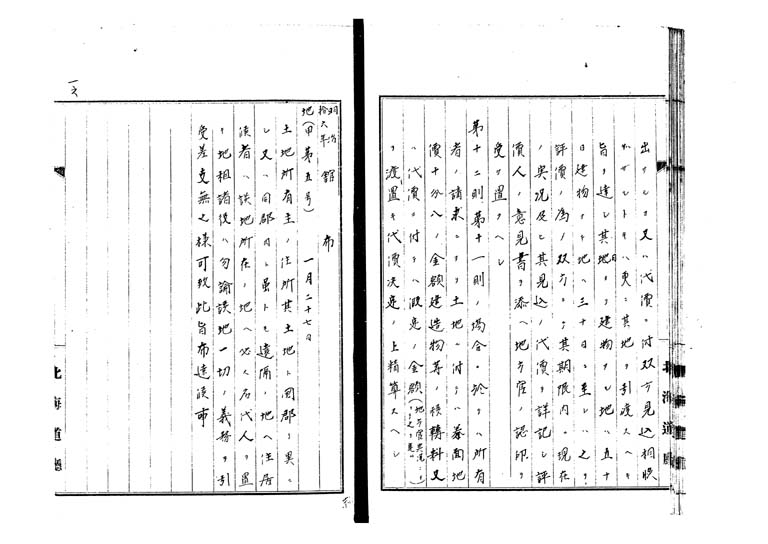 出シ又ハ代價ニ付双方見込相映
セサルトキハ更ニ其地ヲ引渡スヘキ
旨ヲ達シ其地目ヨリ建物ナシ地ハ五十
日建物アル地ハ三十日ニ至レハ之ヲ
評價ノ為メ双方ヨリ其期限内ニ現在
ノ実況及ヒ其見込ノ代價ヲ詳記シ評
價人ノ意見書ヲ添ヘ地方官ノ認印ヲ
受ケ置クヘシ
第十二則第十一則ノ場合ニ於テハ所有
者ノ請求ニヨリ土地ニ付テハ券面地
價十分八ノ金額建造物等ノ移轉料又
ハ代價ニ付テハ假定ノ金額(地方官
ヲ渡置キ代價決定ノ上精算スヘシ
北海道廳
明治
拾六年
舘布
地(甲第五号) 一月二十七日
土地所有主ノ住所其土地ト同郡ニ異ニ
シ又ハ同郡内ト雖トモ遠隔ノ地ヘ住居
候者ハ該地所在ノ地ヘ必ス名代人ヲ置
キ地租諸役ハ勿論該地一切ノ義務ヲ引
受差支無之様可致此旨布達候事
北海道廳